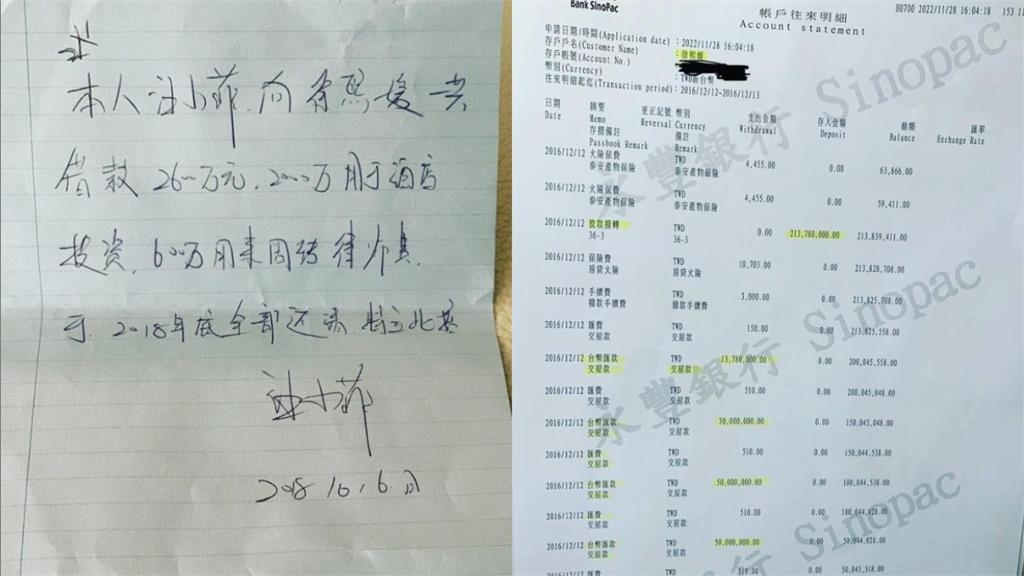 本人汪小菲,向徐熙媛共
借款2600万元,2000万用于酒店
投资,600万用来周转
于2018年底全部还清 特立此
汪小菲
2018
Bank SinoPac
H0700 2022/11/28 16:04:18 153 11
帳戶往來明細
Account statement
申請日期/時間(Application date):2022/11/28 16:04:18
存戶戶名(Customer Name) :徐熙媛
存戶帳號(Account No.) :
幣別(Currency) :TWD新台幣
往來明細起迄(Transaction period):2016/12/12-2016/12/13
日期 摘要 更正記號 幣別 支出金額 存入金額 餘額 匯率
Date Memo Reversal Currency Withdrawal Deposit Balance Exchange Rate
存摺備註 備註
Passbook Remark Remark
2016/12/12 火險保費 TWD 4,455.00 0.00 63,866.00
泰安產物保險 泰安產物保險
2016/12/12 火險保費 TWD 4,455.00 0.00 59,411.00
泰安產物保險 泰安產物保險
2016/12/12 放款撥轉 TWD 0.00 213,780,000.00 213,839,411.00
36-3 36-3
2016/12/12 保險費 TWD 10,703.00 0.00 213,828,708.00
房貸火險 房貸火險
2016/12/12 手續費 TWD 3,000.00 0.00 213,825,708.00
撥款手續費 撥款手續費
2016/12/12 匯費 TWD 150.00 0.00 213,825,558.00
交屋款 交屋款
2016/12/12 台幣匯款 TWD 13,780,000.00 0.00 200,045,558.00
交屋款 交屋款
2016/12/12 匯費 TWD 510.00 0.00 200,045,048.00
交屋款 交屋款
2016/12/12 台幣匯款 TWD 50,000,000.00 0.00 150,045,048.00
交屋款 交屋款
2016/12/12 匯費 TWD 510.00 0.00 150,044,538.00
交屋款 交屋款
2016/12/12 台幣匯款 TWD 50,000,000.00 0.00 100,044,538.00
交屋款 交屋款
2016/12/12 匯費 TWD 510.00 0.00 100,044,028.00
交屋款 交屋款
2016/12/12 台幣匯款 TWD 50,000,000.00 0.00 50,044,028.00
交屋款 交屋款
2016/12/12 匯費 TWD 510.00 0.00 50,043,518.00
永豐銀行 Sinopac
永豐銀行 Sinopac
Sinopac